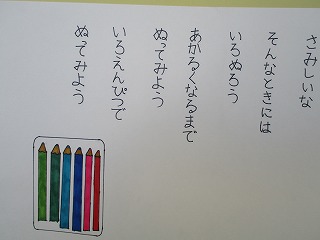 さみしいな
そんなときには
いろぬろう
あかるくなるまで
ぬってみよう
いろえんぴつで
ぬってみよう